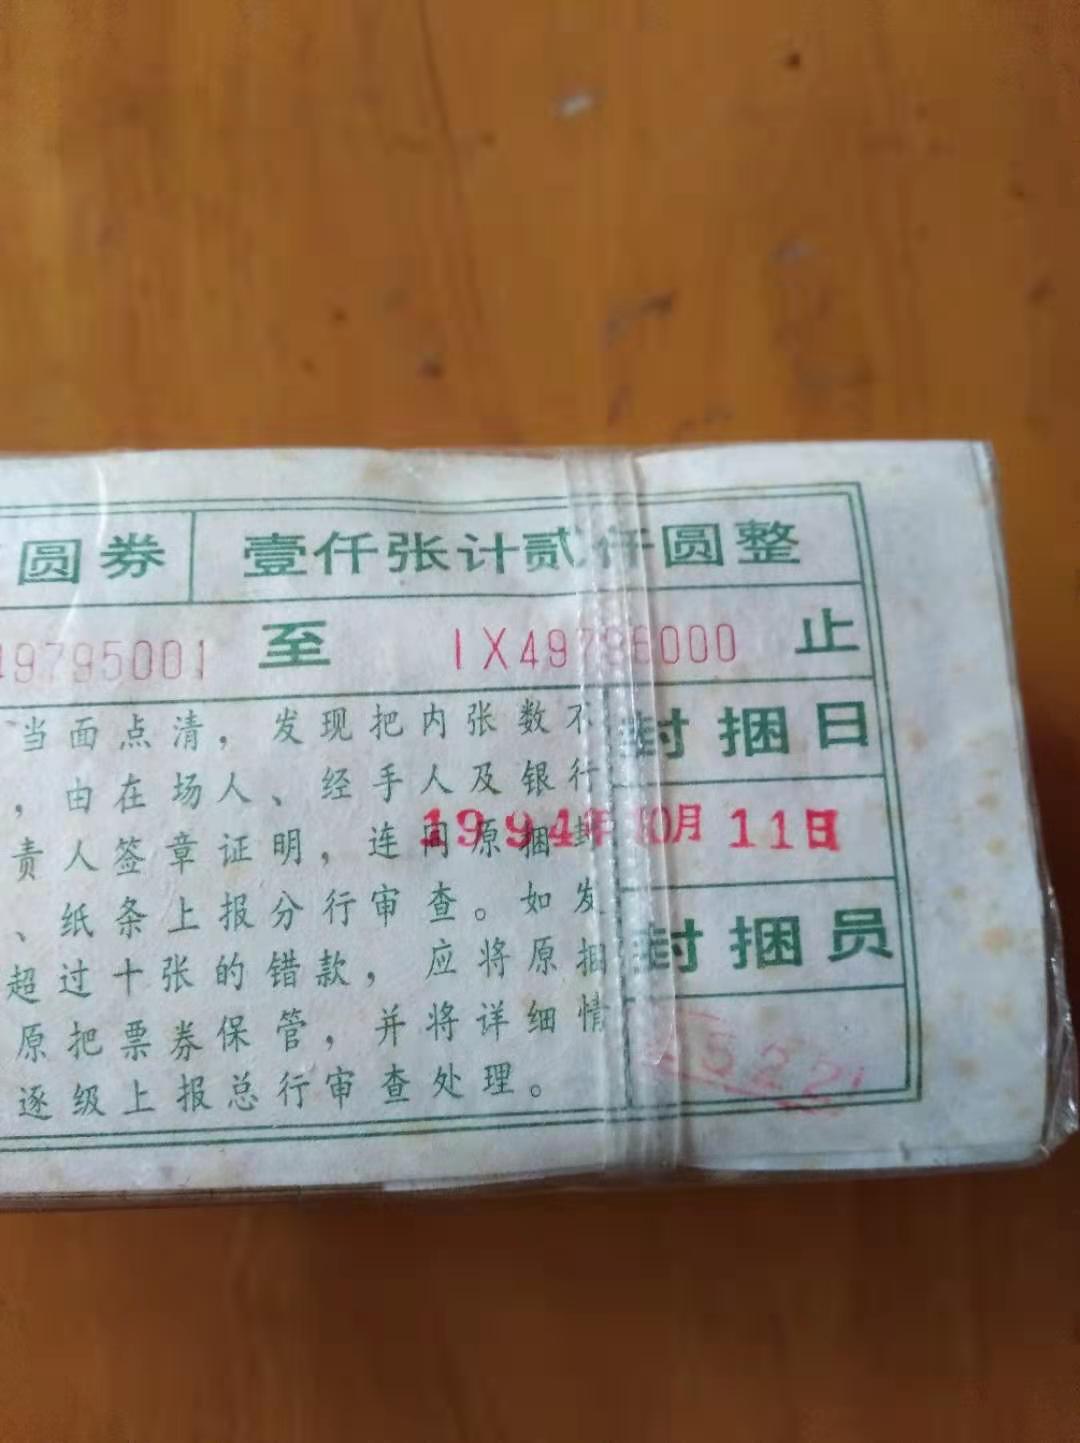 圆券 壹仟张计贰仟圆整
49795001 至 IX49796000 止
当面点清，发现把内张数不
封捆日
，由在场人、经手人及银行
1994年10月11日
责人签章证明，连同原捆封
、纸条上报分行审查。如发
封捆员
超过十张的错款，应将原捆
原把票券保管，并将详细情
逐级上报总行审查处理。